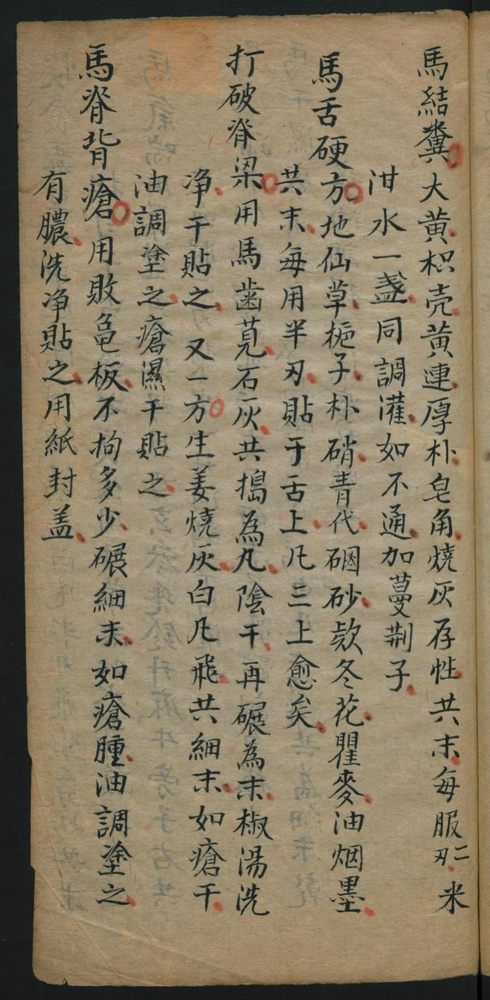 馬結糞大黄枳壳黄連厚朴皂角燒灰存性共末每服二刄米
泔水一盞同調灌如不通加蔓荆子
馬舌硬方地仙草梔子朴硝青代硇砂欵冬花瞿麥油烟墨
共末每用半刄貼于舌上凡三上愈矣
打破脊梁用馬齒莧石灰共搗為丸陰干再碾為末椒湯洗
净干貼之又一方生姜燒灰白凡飛共細末如瘡干
油調塗之瘡濕干貼之
馬脊背瘡用敗龟板不拘多少碾細末如瘡腫油調塗之
有膿洗净貼之用紙封盖